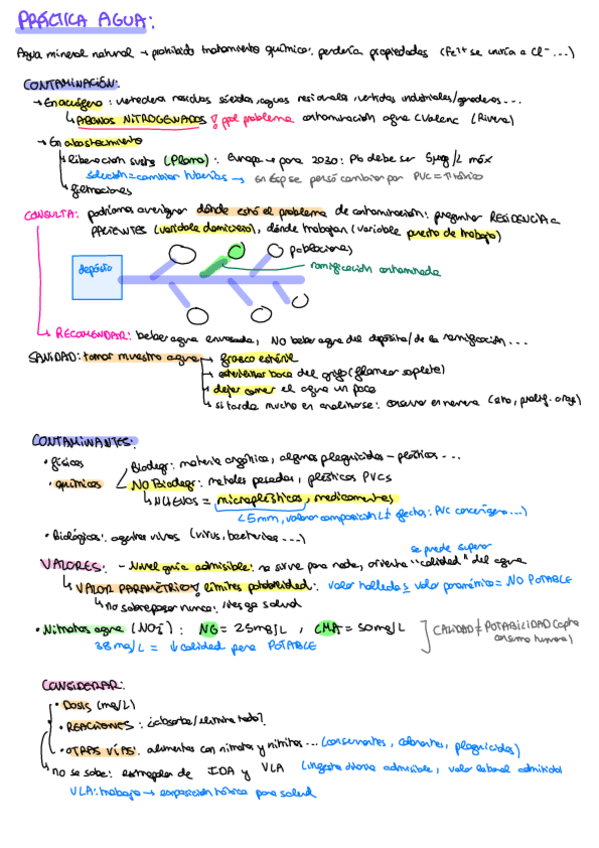 PRÁCTICA AGUA:
Agua mineral natural → prohibido tratamiento químico: perdería propiedades (Fe²⁺ se uniría a Cl⁻ ...)
CONTAMINACIÓN:
→ En acuífero: vertedero residuos sólidos, aguas residuales, vertidos industriales/ganaderos...
↳ ABONOS NITROGENADOS ! ppal problema contaminación agua C.Valenc (Rivera)
→ En abastecimiento
Liberación susts (Plomo): Europa → para 2030: Pb debe ser 5µg/L máx
solución = cambiar tuberías → En Esp se pensó cambiar por PVC = tóxico
Filtraciones
CONSULTA: podríamos averiguar dónde está el problema de contaminación: preguntar RESIDENCIA a
PACIENTES (variable domicilio), dónde trabajan (variable puesto de trabajo)
depósito
poblaciones
ramificación contaminada
RECOMENDAR: beber agua envasada, NO beber agua del depósito/de la ramificación...
SANIDAD: tomar muestra agua → frasco estéril
→ esterilizar boca del grifo (flamear soplete)
→ dejar correr el agua un poco
→ si tarda mucho en analizarse: conservar en nevera
CONTAMINANTES:
• físicos
Biodegr: materia orgánica, algunos plaguicidas - plásticos...
• químicos
NO Biodegr: metales pesados, plásticos PVCs
↳ NUEVOS = microplásticos, medicamentos
(<5mm, valorar composición (≠ efectos: PVC cancerígeno...)
• Biológicos: agentes vivos (virus, bacterias...)
se puede superar
VALORES: - Nivel guía admisible: no sirve para nada, orienta "calidad" del agua
↳ VALOR PARAMÉTRICO ! límites potabilidad: valor hallado ≥ valor paramétrico = NO POTABLE
↳ no sobrepasar nunca: riesgo salud
• Nitratos agua (NO₃⁻): NG = 25mg/L, CMA = 50mg/L ] CALIDAD ≠ POTABILIDAD (apta
consumo humano)
38 mg/L = ↓ calidad pero POTABLE
CONSIDERAR:
• Dosis (mg/L)
• REACCIONES: ¿absorbe/elimina todo?
• OTRAS VÍAS: alimentos con nitratos y nitritos... (conservantes, colorantes, plaguicidas)
no se sabe: extrapolan de IDA y VLA (ingesta diaria admisible, valor laboral admitido)
VLA: trabajo → exposición tóxica para salud